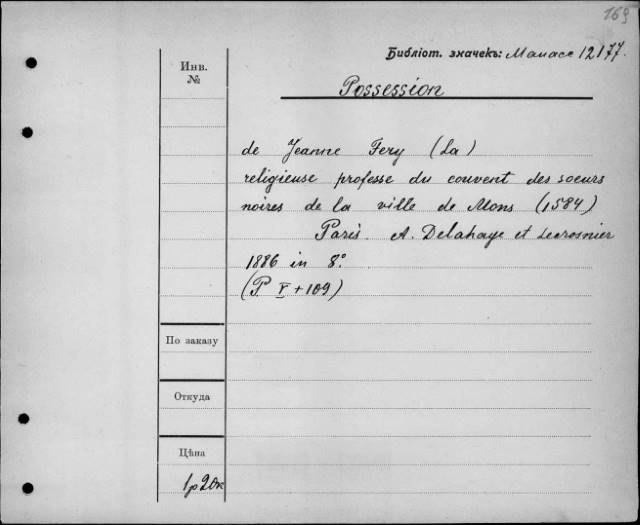 169
Библіот. значекъ: Манасе 12177.
Инв.
№
Possession
de Jeanne Fery (La)
religieuse professe du couvent des soeurs
noires de la ville de Mons (1584)
Paris. A. Delahaye et Lecrosnier
1886 in 8°.
(P. V + 109)
По заказу
Откуда
Цѣна
1р 20к